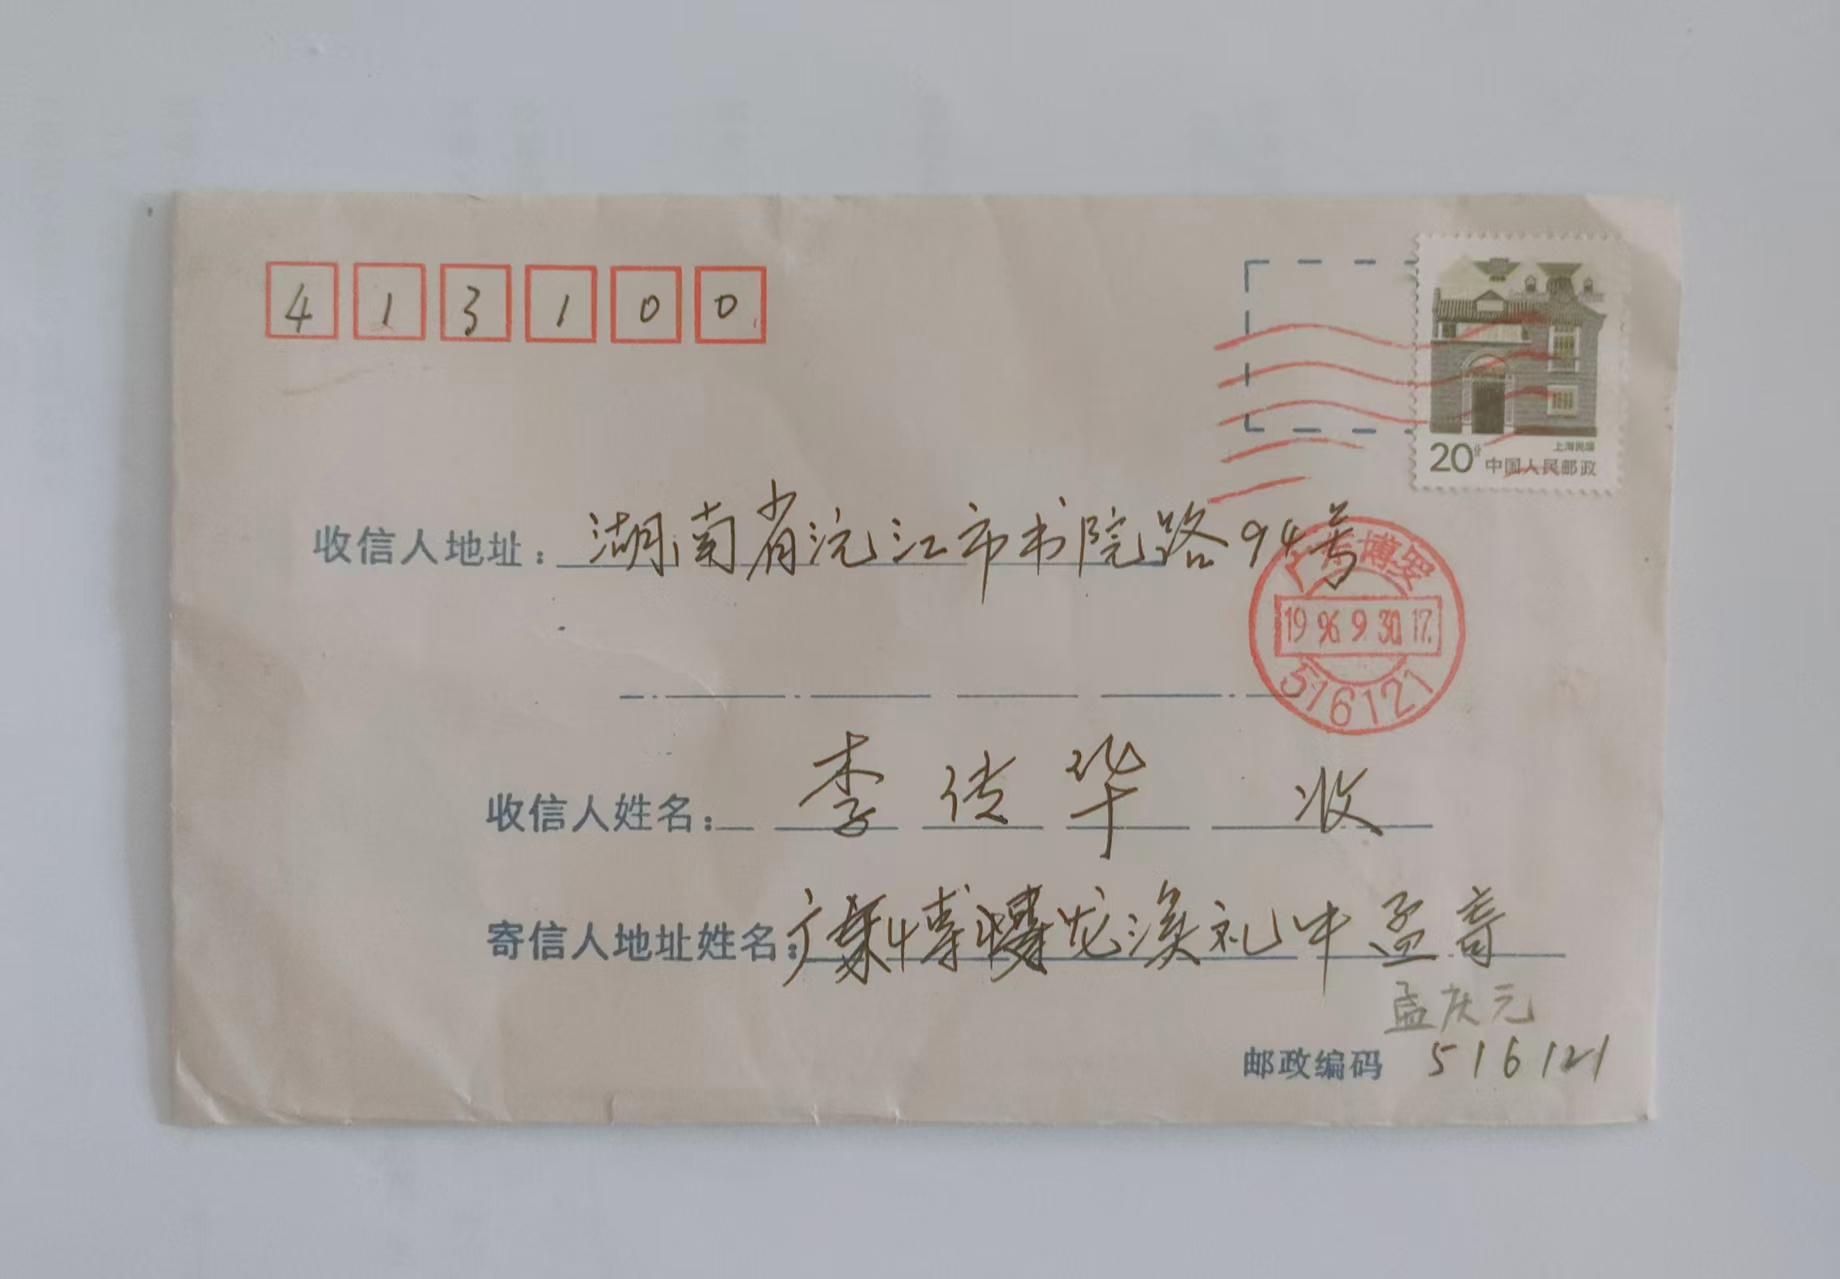 413100
20分 上海民居
中国人民邮政
收信人地址：湖南省沅江市书院路94号
广东博罗
1996.9.30.17.
516121
收信人姓名：李传华 收
寄信人地址姓名：广东博 龙溪礼中孟
孟庆元
邮政编码 516121